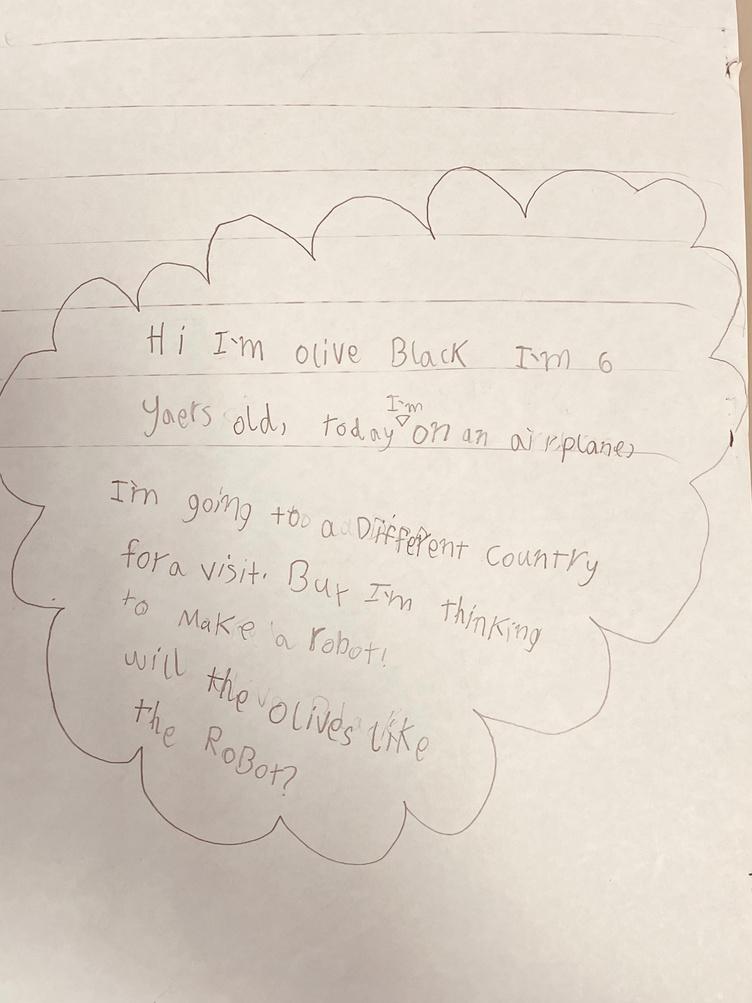 Hi I'm olive Black I'm 6
Yaers old, today I'm on an airplane,
I'm going to a DiFFerent country
for a visit. But I'm thinking
to Make a robot!
will the olives like
the RoBot?